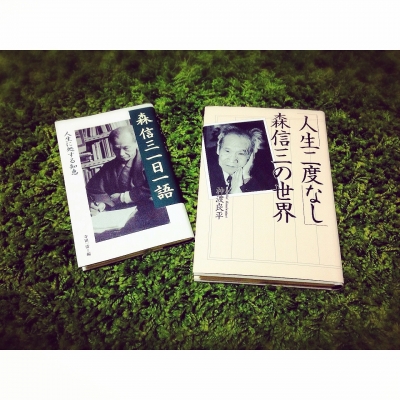 森信三一日一語
人生に処する知恵
人生二度なし
森信三の世界
神渡良平